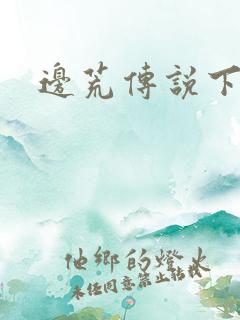 邊荒傳說下
他鄉的燈火
未經同意禁止轉載